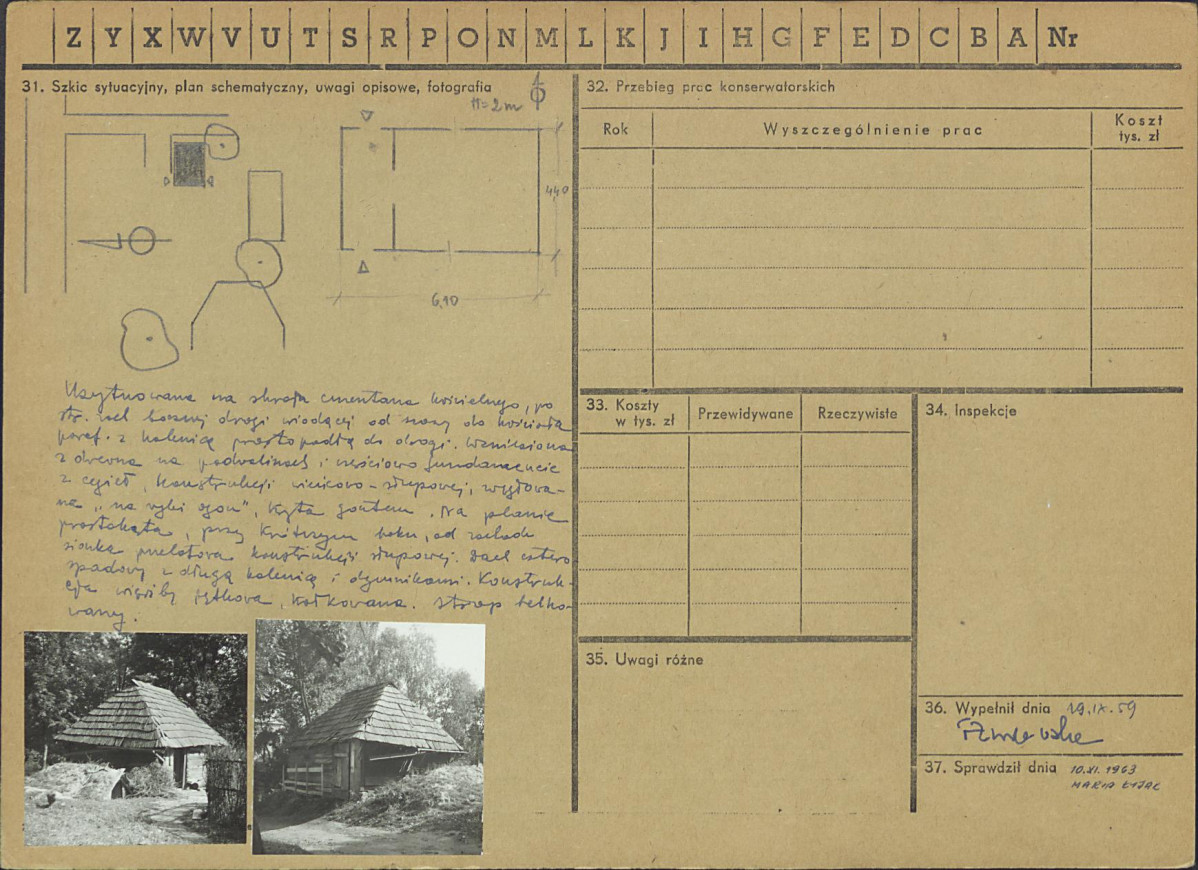 Z Y X W V U T S R P O N M L K J I H G F E D C B A Nr
31. Szkic sytuacyjny, plan schematyczny, uwagi opisowe, fotografia
H=2m
4,40
6,10
Usytuowana na skraju cmentarza kościelnego, po
str. bocznej drogi wiodącej od szosy do kościoła
paraf. z kalenicą prostopadłą do drogi. Wzniesiona
z drewna na podwalinach i częściowo fundamencie
z cegieł, konstrukcji wieńcowo-słupowej, węgłowa-
na "na rybi ogon", kryta gontem. Na planie
prostokąta, przy krótszym boku, od zachodu
sionka przelotowa konstrukcji słupowej. Dach cztero
spadowy z długą kalenicą i dymnikami. Konstruk-
cja więźby jętkowa, kołkowana. Strop belko-
wany.
32. Przebieg prac konserwatorskich
Rok
Wyszczególnienie prac
Koszt
tys. zł
33. Koszty
w tys. zł
Przewidywane
Rzeczywiste
34. Inspekcje
35. Uwagi różne
36. Wypełnił dnia 19.IX.59
37. Sprawdził dnia 10.XI.1963
MARIA